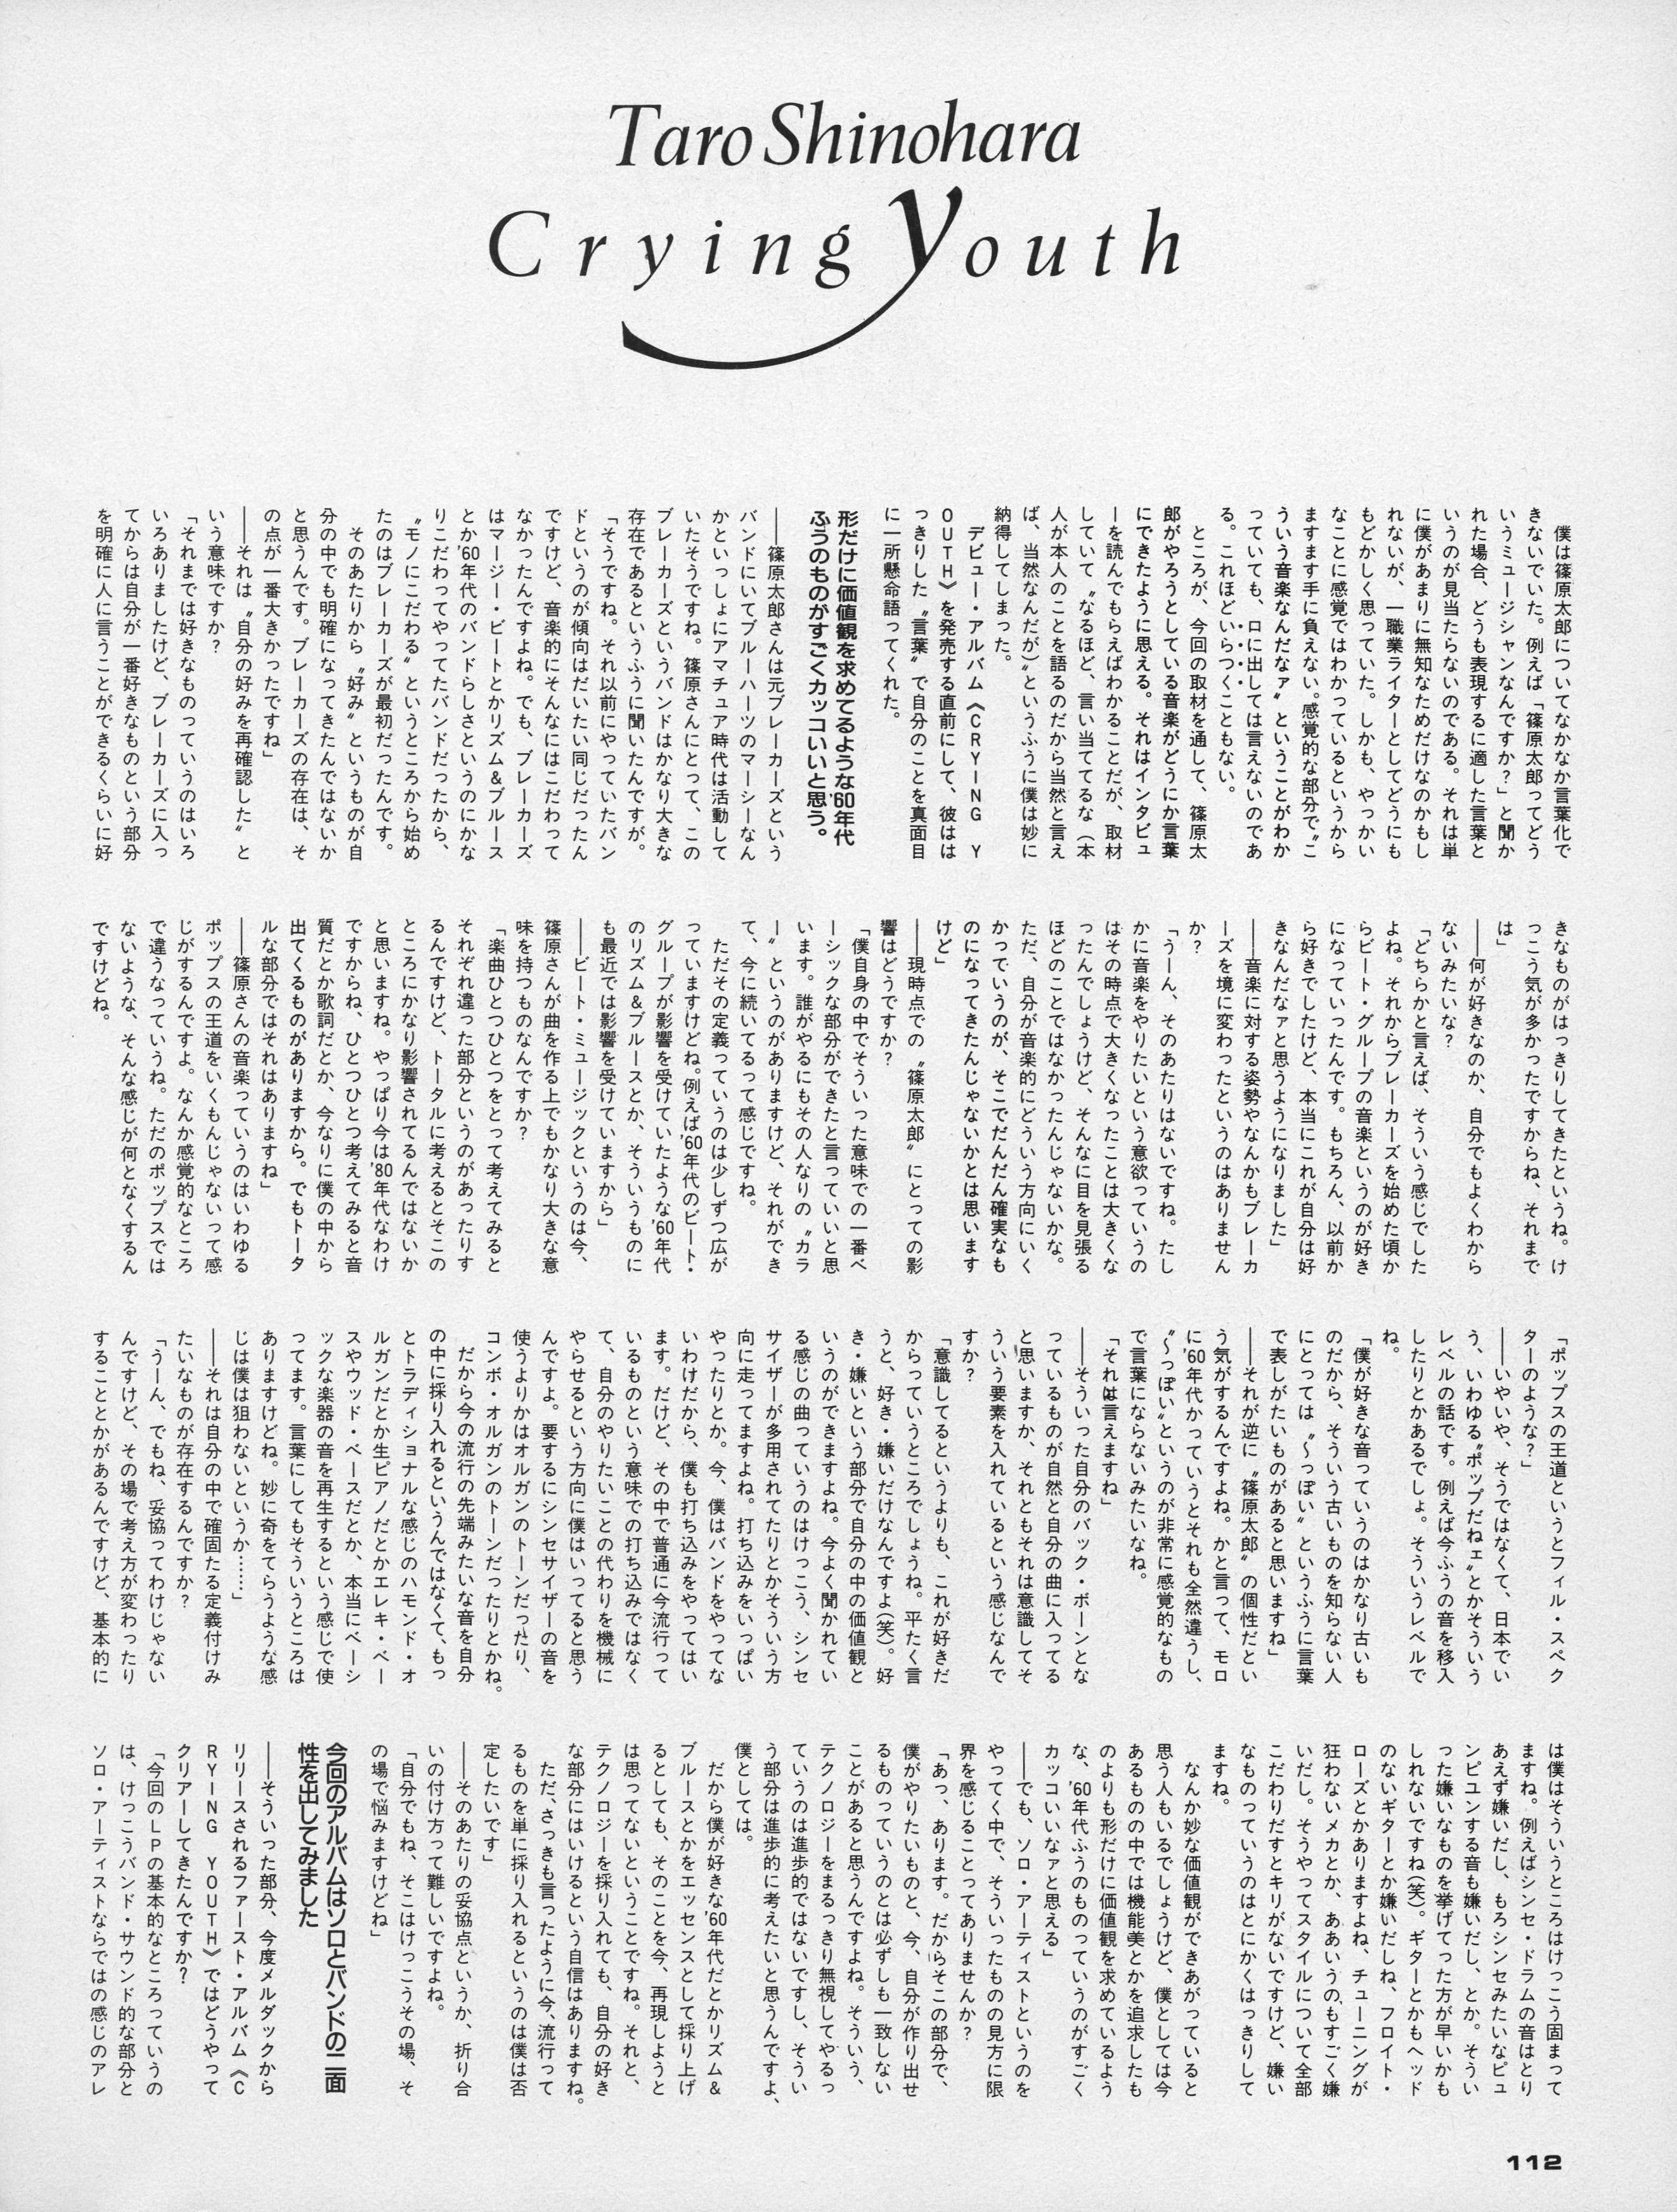 Taro Shinohara
Crying Youth
　僕は篠原太郎についてなかなか言葉化で
きないでいた。例えば「篠原太郎ってどう
いうミュージシャンなんですか？」と聞か
れた場合、どうも表現するに適した言葉と
いうのが見当たらないのである。それは単
に僕があまりに無知なためだけなのかもし
れないが、一職業ライターとしてどうにも
もどかしく思っていた。しかも、やっかい
なことに感覚ではわかっているというから
ますます手に負えない。感覚的な部分で〝こ
ういう音楽なんだなァ〟ということがわか
っていても、口に出しては言えないのであ
る。これほどいらつくこともない。
　ところが、今回の取材を通して、篠原太
郎がやろうとしている音楽がどうにか言葉
にできたように思える。それはインタビュ
ーを読んでもらえばわかることだが、取材
していて〝なるほど、言い当ててるな（本
人が本人のことを語るのだから当然と言え
ば、当然なんだが）〟というふうに僕は妙に
納得してしまった。
　デビュー・アルバム《ＣＲＹＩＮＧ　Ｙ
ＯＵＴＨ》を発売する直前にして、彼はは
っきりした〝言葉〟で自分のことを真面目
に一所懸命語ってくれた。
形だけに価値観を求めてるような’60年代
ふうのものがすごくカッコいいと思う。
──篠原太郎さんは元ブレーカーズという
バンドにいてブルーハーツのマーシーなん
かといっしょにアマチュア時代は活動して
いたそうですね。篠原さんにとって、この
ブレーカーズというバンドはかなり大きな
存在であるというふうに聞いたんですが。
「そうですね。それ以前にやっていたバン
ドというのが傾向はだいたい同じだったん
ですけど、音楽的にそんなにはこだわって
なかったんですよね。でも、ブレーカーズ
はマージー・ビートとかリズム＆ブルース
とか’60年代のバンドらしさというのにかな
りこだわってやってたバンドだったから、
〝モノにこだわる〟というところから始め
たのはブレーカーズが最初だったんです。
　そのあたりから〝好み〟というものが自
分の中でも明確になってきたんではないか
と思うんです。ブレーカーズの存在は、そ
の点が一番大きかったですね」
──それは〝自分の好みを再確認した〟と
いう意味ですか？
「それまでは好きなものっていうのはいろ
いろありましたけど、ブレーカーズに入っ
てからは自分が一番好きなものという部分
を明確に人に言うことができるくらいに好
きなものがはっきりしてきたというね。け
っこう気が多かったですからね、それまで
は」
──何が好きなのか、自分でもよくわから
ないみたいな？
「どちらかと言えば、そういう感じでした
よね。それからブレーカーズを始めた頃か
らビート・グループの音楽というのが好き
になっていったんです。もちろん、以前か
ら好きでしたけど、本当にこれが自分は好
きなんだなァと思うようになりました」
──音楽に対する姿勢やなんかもブレーカ
ーズを境に変わったというのはありません
か？
「うーん、そのあたりはないですね。たし
かに音楽をやりたいという意欲っていうの
はその時点で大きくなったことは大きくな
ったんでしょうけど、そんなに目を見張る
ほどのことではなかったんじゃないかな。
ただ、自分が音楽的にどういう方向にいく
かっていうのが、そこでだんだん確実なも
のになってきたんじゃないかとは思います
けど」
──現時点での〝篠原太郎〟にとっての影
響はどうですか？
「僕自身の中でそういった意味での一番ベ
ーシックな部分ができたと言っていいと思
います。誰がやるにもその人なりの〝カラ
ー〟というのがありますけど、それができ
て、今に続いてるって感じですね。
　ただその定義っていうのは少しずつ広が
っていますけどね。例えば’60年代のビート・
グループが影響を受けていたような’60年代
のリズム＆ブルースとか、そういうものに
も最近では影響を受けていますから」
──ビート・ミュージックというのは今、
篠原さんが曲を作る上でもかなり大きな意
味を持つものなんですか？
「楽曲ひとつひとつをとって考えてみると
それぞれ違った部分というのがあったりす
るんですけど、トータルに考えるとそこの
ところにかなり影響されてるんではないか
と思いますね。やっぱり今は’80年代なわけ
ですからね、ひとつひとつ考えてみると音
質だとか歌詞だとか、今なりに僕の中から
出てくるものがありますから。でもトータ
ルな部分ではそれはありますね」
──篠原さんの音楽っていうのはいわゆる
ポップスの王道をいくもんじゃないって感
じがするんですよ。なんか感覚的なところ
で違うなっていうね。ただのポップスでは
ないような、そんな感じが何となくするん
ですけどね。
「ポップスの王道というとフィル・スペク
ターのような？」
──いやいや、そうではなくて、日本でい
う、いわゆる〝ポップだねェ〟とかそういう
レベルの話です。例えば今ふうの音を移入
したりとかあるでしょ。そういうレベルで
ね。
「僕が好きな音っていうのはかなり古いも
のだから、そういう古いものを知らない人
にとっては〝〜っぽい〟というふうに言葉
で表しがたいものがあると思いますね」
──それが逆に〝篠原太郎〟の個性だとい
う気がするんですよね。かと言って、モロ
に’60年代かっていうとそれも全然違うし、
〝〜っぽい〟というのが非常に感覚的なもの
で言葉にならないみたいなね。
「それは言えますね」
──そういった自分のバック・ボーンとな
っているものが自然と自分の曲に入ってる
と思いますか、それともそれは意識してそ
ういう要素を入れているという感じなんで
すか？
「意識してるというよりも、これが好きだ
からっていうところでしょうね。平たく言
うと、好き・嫌いだけなんですよ（笑）。好
き・嫌いという部分で自分の中の価値観と
いうのができますよね。今よく聞かれてい
る感じの曲っていうのはけっこう、シンセ
サイザーが多用されてたりとかそういう方
向に走ってますよね。打ち込みをいっぱい
やったりとか。今、僕はバンドをやってな
いわけだから、僕も打ち込みをやってはい
ます。だけど、その中で普通に今流行って
いるものという意味での打ち込みではなく
て、自分のやりたいことの代わりを機械に
やらせるという方向に僕はいってると思う
んですよ。要するにシンセサイザーの音を
使うよりかはオルガンのトーンだったり、
コンボ・オルガンのトーンだったりとかね。
　だから今の流行の先端みたいな音を自分
の中に採り入れるというんではなくて、もっ
とトラディショナルな感じのハモンド・オ
ルガンだとか生ピアノだとかエレキ・ベー
スやウッド・ベースだとか、本当にベーシ
ックな楽器の音を再生するという感じで使
ってます。言葉にしてもそういうところは
ありますけどね。妙に奇をてらうような感
じは僕は狙わないというか……」
──それは自分の中で確固たる定義付けみ
たいなものが存在するんですか？
「うーん、でもね、妥協ってわけじゃない
んですけど、その場で考え方が変わったり
することとかがあるんですけど、基本的に
は僕はそういうところはけっこう固まって
ますね。例えばシンセ・ドラムの音はとり
あえず嫌いだし、もろシンセみたいなピュ
ンピュンする音も嫌いだし、とか。そうい
った嫌いなものを挙げてった方が早いかも
しれないですね（笑）。ギターとかもヘッド
のないギターとか嫌いだしね、フロイト・
ローズとかありますよね、チューニングが
狂わないメカとか、ああいうの、もすごく嫌
いだし。そうやってスタイルについて全部
こだわりだすとキリがないですけど、嫌い
なものっていうのはとにかくはっきりして
ますね。
　なんか妙な価値観ができあがっていると
思う人もいるでしょうけど、僕としては今
あるものの中では機能美とかを追求したも
のよりも形だけに価値観を求めているよう
な、’60年代ふうのものっていうのがすごく
カッコいいなァと思える」
──でも、ソロ・アーティストというのを
やってく中で、そういったものの見方に限
界を感じることってありませんか？
「あっ、あります。だからそこの部分で、
僕がやりたいものと、今、自分が作り出せ
るものっていうのとは必ずしも一致しない
ことがあると思うんですよね。そういう、
テクノロジーをまるっきり無視してやるっ
ていうのは進歩的ではないですし、そうい
う部分は進歩的に考えたいと思うんですよ、
僕としては。
　だから僕が好きな’60年代だとかリズム＆
ブルースとかをエッセンスとして採り上げ
るとしても、そのことを今、再現しようと
は思ってないということですね。それと、
テクノロジーを採り入れても、自分の好き
な部分にはいけるという自信はありますね。
　ただ、さっきも言ったように今、流行って
るものを単に採り入れるというのは僕は否
定したいです」
──そのあたりの妥協点というか、折り合
いの付け方って難しいですよね。
「自分でもね、そこはけっこうその場、そ
の場で悩みますけどね」
今回のアルバムはソロとバンドの二面
性を出してみました
──そういった部分、今度メルダックから
リリースされるファースト・アルバム《Ｃ
ＲＹＩＮＧ　ＹＯＵＴＨ》ではどうやって
クリアーしてきたんですか？
「今回のＬＰの基本的なところっていうの
は、けっこうバンド・サウンド的な部分と
ソロ・アーティストならではの感じのアレ
112